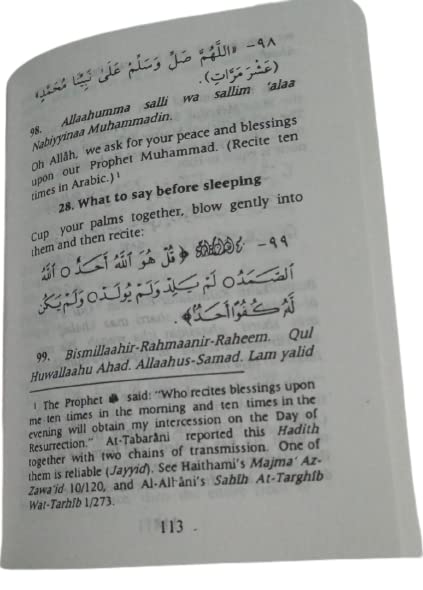 ٩٨- «اللَّهُمَّ صَلِّ وَسَلِّمْ عَلَىٰ نَبِيِّنَا مُحَمَّدٍ»
(عَشْرَ مَرَّاتٍ).
98. Allaahumma salli wa sallim 'alaa
Nabiyyinaa Muhammadin.
Oh Allâh, we ask for your peace and blessings
upon our Prophet Muhammad. (Recite ten
times in Arabic.)¹
28. What to say before sleeping
Cup your palms together, blow gently into
them and then recite:
٩٩- ﴿قُلْ هُوَ اللَّهُ أَحَدٌ ۝ اللَّهُ
الصَّمَدُ ۝ لَمْ يَلِدْ وَلَمْ يُولَدْ ۝ وَلَمْ يَكُن
لَّهُ كُفُوًا أَحَدٌ﴾.
99. Bismillaahir-Rahmaanir-Raheem. Qul
Huwallaahu Ahad. Allaahus-Samad. Lam yalid
¹ The Prophet ﷺ said: "Who recites blessings upon
me ten times in the morning and ten times in the
evening will obtain my intercession on the Day of
Resurrection." At-Tabarâni reported this Hadith
together with two chains of transmission. One of
them is reliable (Jayyid). See Haithami's Majma' Az-
Zawa'id 10/120, and Al-Albâni's Sahîh At-Targhîb
Wat-Tarhîb 1/273.
113